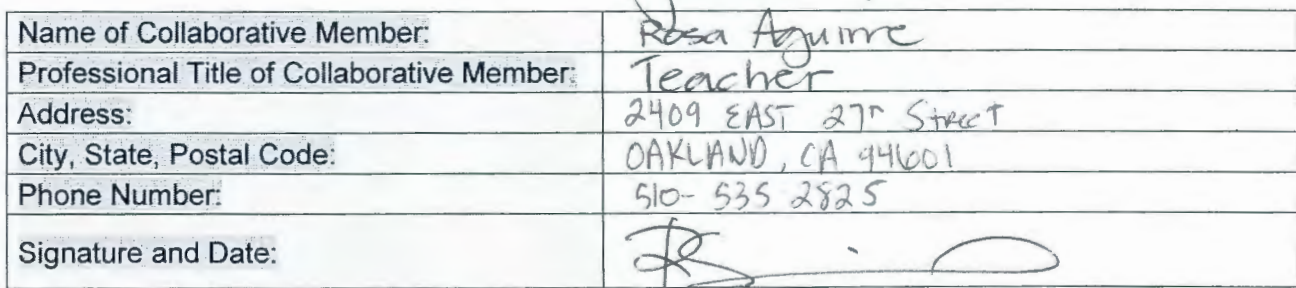 Name of Collaborative Member: Rosa Aguirre
Professional Title of Collaborative Member: Teacher
Address: 2409 EAST 27th Street
City, State, Postal Code: OAKLAND, CA 94601
Phone Number: 510-535 2825
Signature and Date: